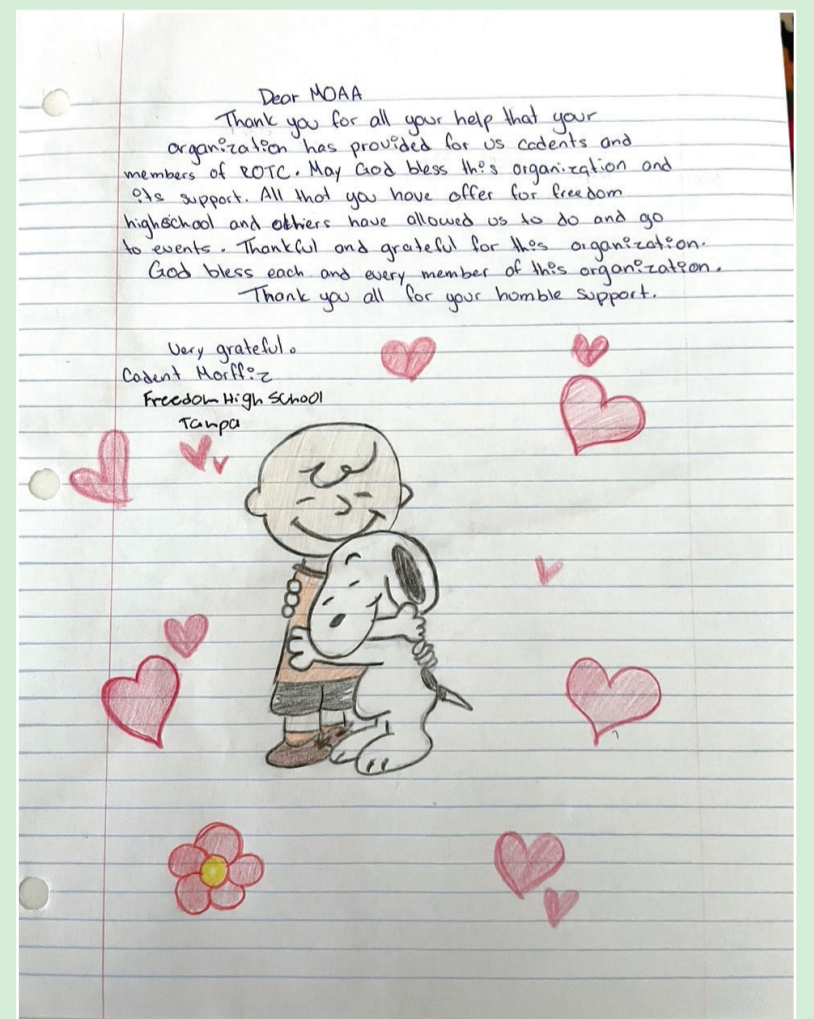 Dear MOAA
Thank you for all your help that your
organization has provided for us cadents and
members of ROTC. May God bless this organization and
its support. All that you have offer for freedom
highschool and others have allowed us to do and go
to events. Thankful and grateful for this organization.
God bless each and every member of this organization.
Thank you all for your homble support.
Very grateful.
Cadent Morffiz
Freedom High School
Tanpa